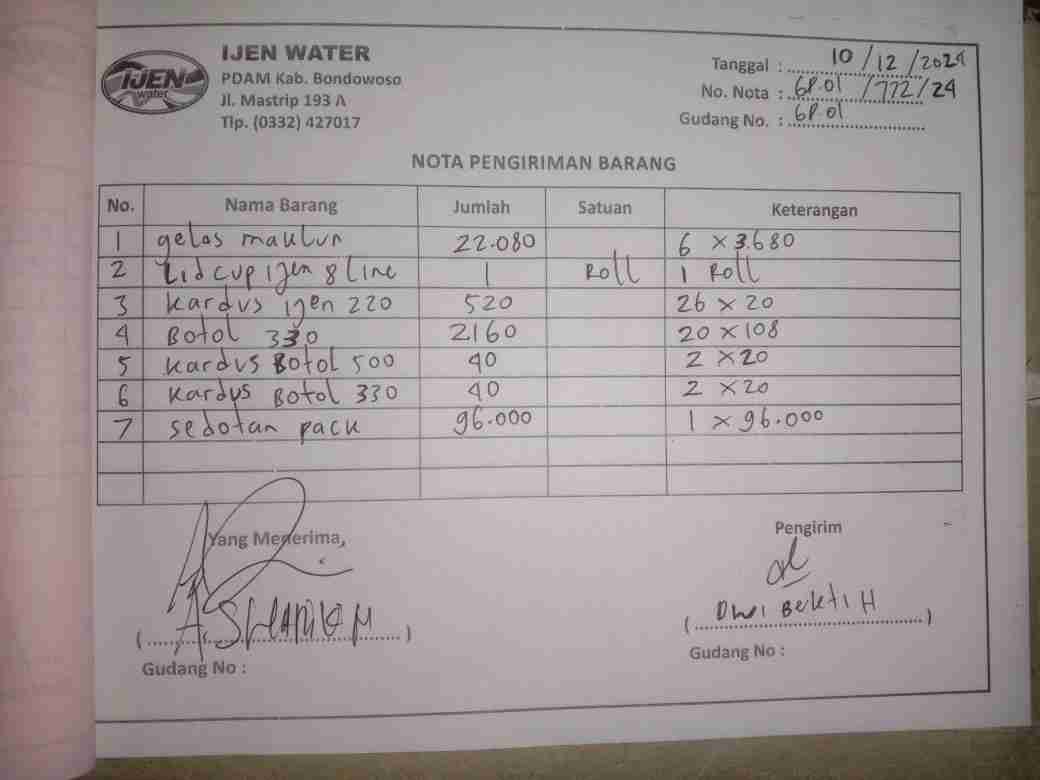 IJEN water
IJEN WATER
PDAM Kab. Bondowoso
Jl. Mastrip 193 A
Tlp. (0332) 427017
Tanggal : 10 / 12 / 2024
No. Nota : 6P.01 / 772 / 24
Gudang No. : 6P.01
NOTA PENGIRIMAN BARANG
No. Nama Barang Jumlah Satuan Keterangan
1 gelas maklun 22.080 6 x 3.680
2 Lid cup ijen 8 Line 1 Roll 1 Roll
3 kardus ijen 220 520 26 x 20
4 Botol 330 2160 20 x 108
5 kardus Botol 500 40 2 x 20
6 kardus Botol 330 40 2 x 20
7 sedotan pack 96.000 1 x 96.000
Yang Menerima, Pengirim
( ) ( Dwi Bekti H )
Gudang No : Gudang No :